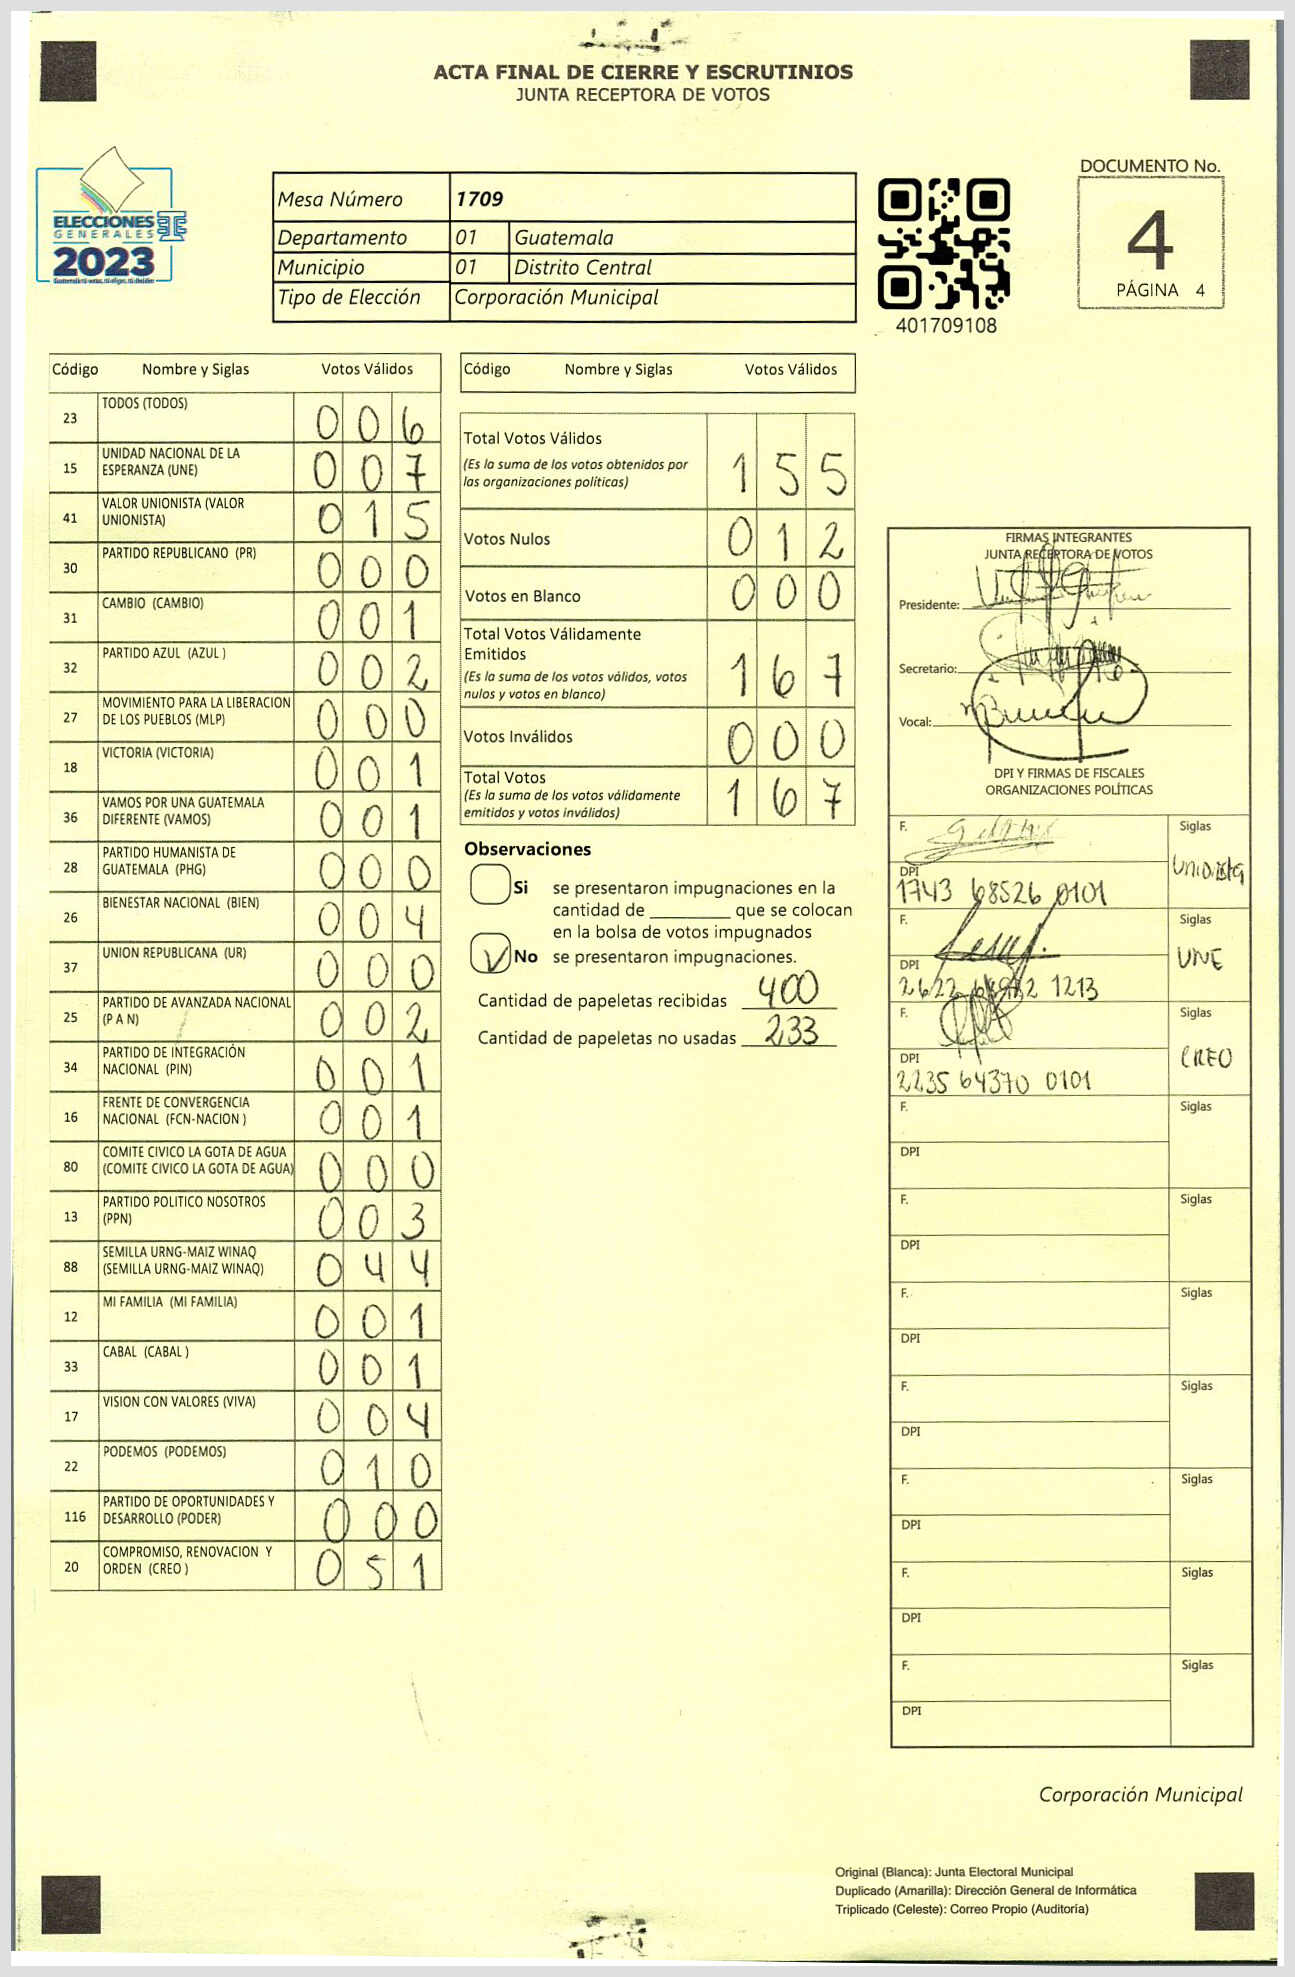 ACTA FINAL DE CIERRE Y ESCRUTINIOS
JUNTA RECEPTORA DE VOTOS
ELECCIONES
GENERALES
2023
Mesa Número 1709
Departamento 01 Guatemala
Municipio 01 Distrito Central
Tipo de Elección Corporación Municipal
401709108
DOCUMENTO No.
4
PÁGINA 4
Código Nombre y Siglas Votos Válidos
23 TODOS (TODOS) 0 0 6
15 UNIDAD NACIONAL DE LA
ESPERANZA (UNE) 0 0 7
41 VALOR UNIONISTA (VALOR
UNIONISTA) 0 1 5
30 PARTIDO REPUBLICANO (PR) 0 0 0
31 CAMBIO (CAMBIO) 0 0 1
32 PARTIDO AZUL (AZUL ) 0 0 2
27 MOVIMIENTO PARA LA LIBERACION
DE LOS PUEBLOS (MLP) 0 0 0
18 VICTORIA (VICTORIA) 0 0 1
36 VAMOS POR UNA GUATEMALA
DIFERENTE (VAMOS) 0 0 1
28 PARTIDO HUMANISTA DE
GUATEMALA (PHG) 0 0 0
26 BIENESTAR NACIONAL (BIEN) 0 0 4
37 UNION REPUBLICANA (UR) 0 0 0
25 PARTIDO DE AVANZADA NACIONAL
(P A N) 0 0 2
34 PARTIDO DE INTEGRACIÓN
NACIONAL (PIN) 0 0 1
16 FRENTE DE CONVERGENCIA
NACIONAL (FCN-NACION ) 0 0 1
80 COMITE CIVICO LA GOTA DE AGUA
(COMITE CIVICO LA GOTA DE AGUA) 0 0 0
13 PARTIDO POLITICO NOSOTROS
(PPN) 0 0 3
88 SEMILLA URNG-MAIZ WINAQ
(SEMILLA URNG-MAIZ WINAQ) 0 4 4
12 MI FAMILIA (MI FAMILIA) 0 0 1
33 CABAL (CABAL ) 0 0 1
17 VISION CON VALORES (VIVA) 0 0 4
22 PODEMOS (PODEMOS) 0 1 0
116 PARTIDO DE OPORTUNIDADES Y
DESARROLLO (PODER) 0 0 0
20 COMPROMISO, RENOVACION Y
ORDEN (CREO ) 0 5 1
Código Nombre y Siglas Votos Válidos
Total Votos Válidos
(Es la suma de los votos obtenidos por
las organizaciones políticas) 1 5 5
Votos Nulos 0 1 2
Votos en Blanco 0 0 0
Total Votos Válidamente
Emitidos
(Es la suma de los votos válidos, votos
nulos y votos en blanco) 1 6 7
Votos Inválidos 0 0 0
Total Votos
(Es la suma de los votos válidamente
emitidos y votos inválidos) 1 6 7
Observaciones
Si se presentaron impugnaciones en la
cantidad de ________ que se colocan
en la bolsa de votos impugnados
No se presentaron impugnaciones.
Cantidad de papeletas recibidas 400
Cantidad de papeletas no usadas 233
FIRMAS INTEGRANTES
JUNTA RECEPTORA DE VOTOS
Presidente:
Secretario:
Vocal:
DPI Y FIRMAS DE FISCALES
ORGANIZACIONES POLÍTICAS
F. Siglas
DPI
1743 68526 0101
F. Siglas
UNE
DPI
2622 1213
F. Siglas
CREO
DPI
2235 64370 0101
F. Siglas
DPI
F. Siglas
DPI
F. Siglas
DPI
F. Siglas
DPI
F. Siglas
DPI
F. Siglas
DPI
F. Siglas
DPI
Corporación Municipal
Original (Blanca): Junta Electoral Municipal
Duplicado (Amarilla): Dirección General de Informática
Triplicado (Celeste): Correo Propio (Auditoría)